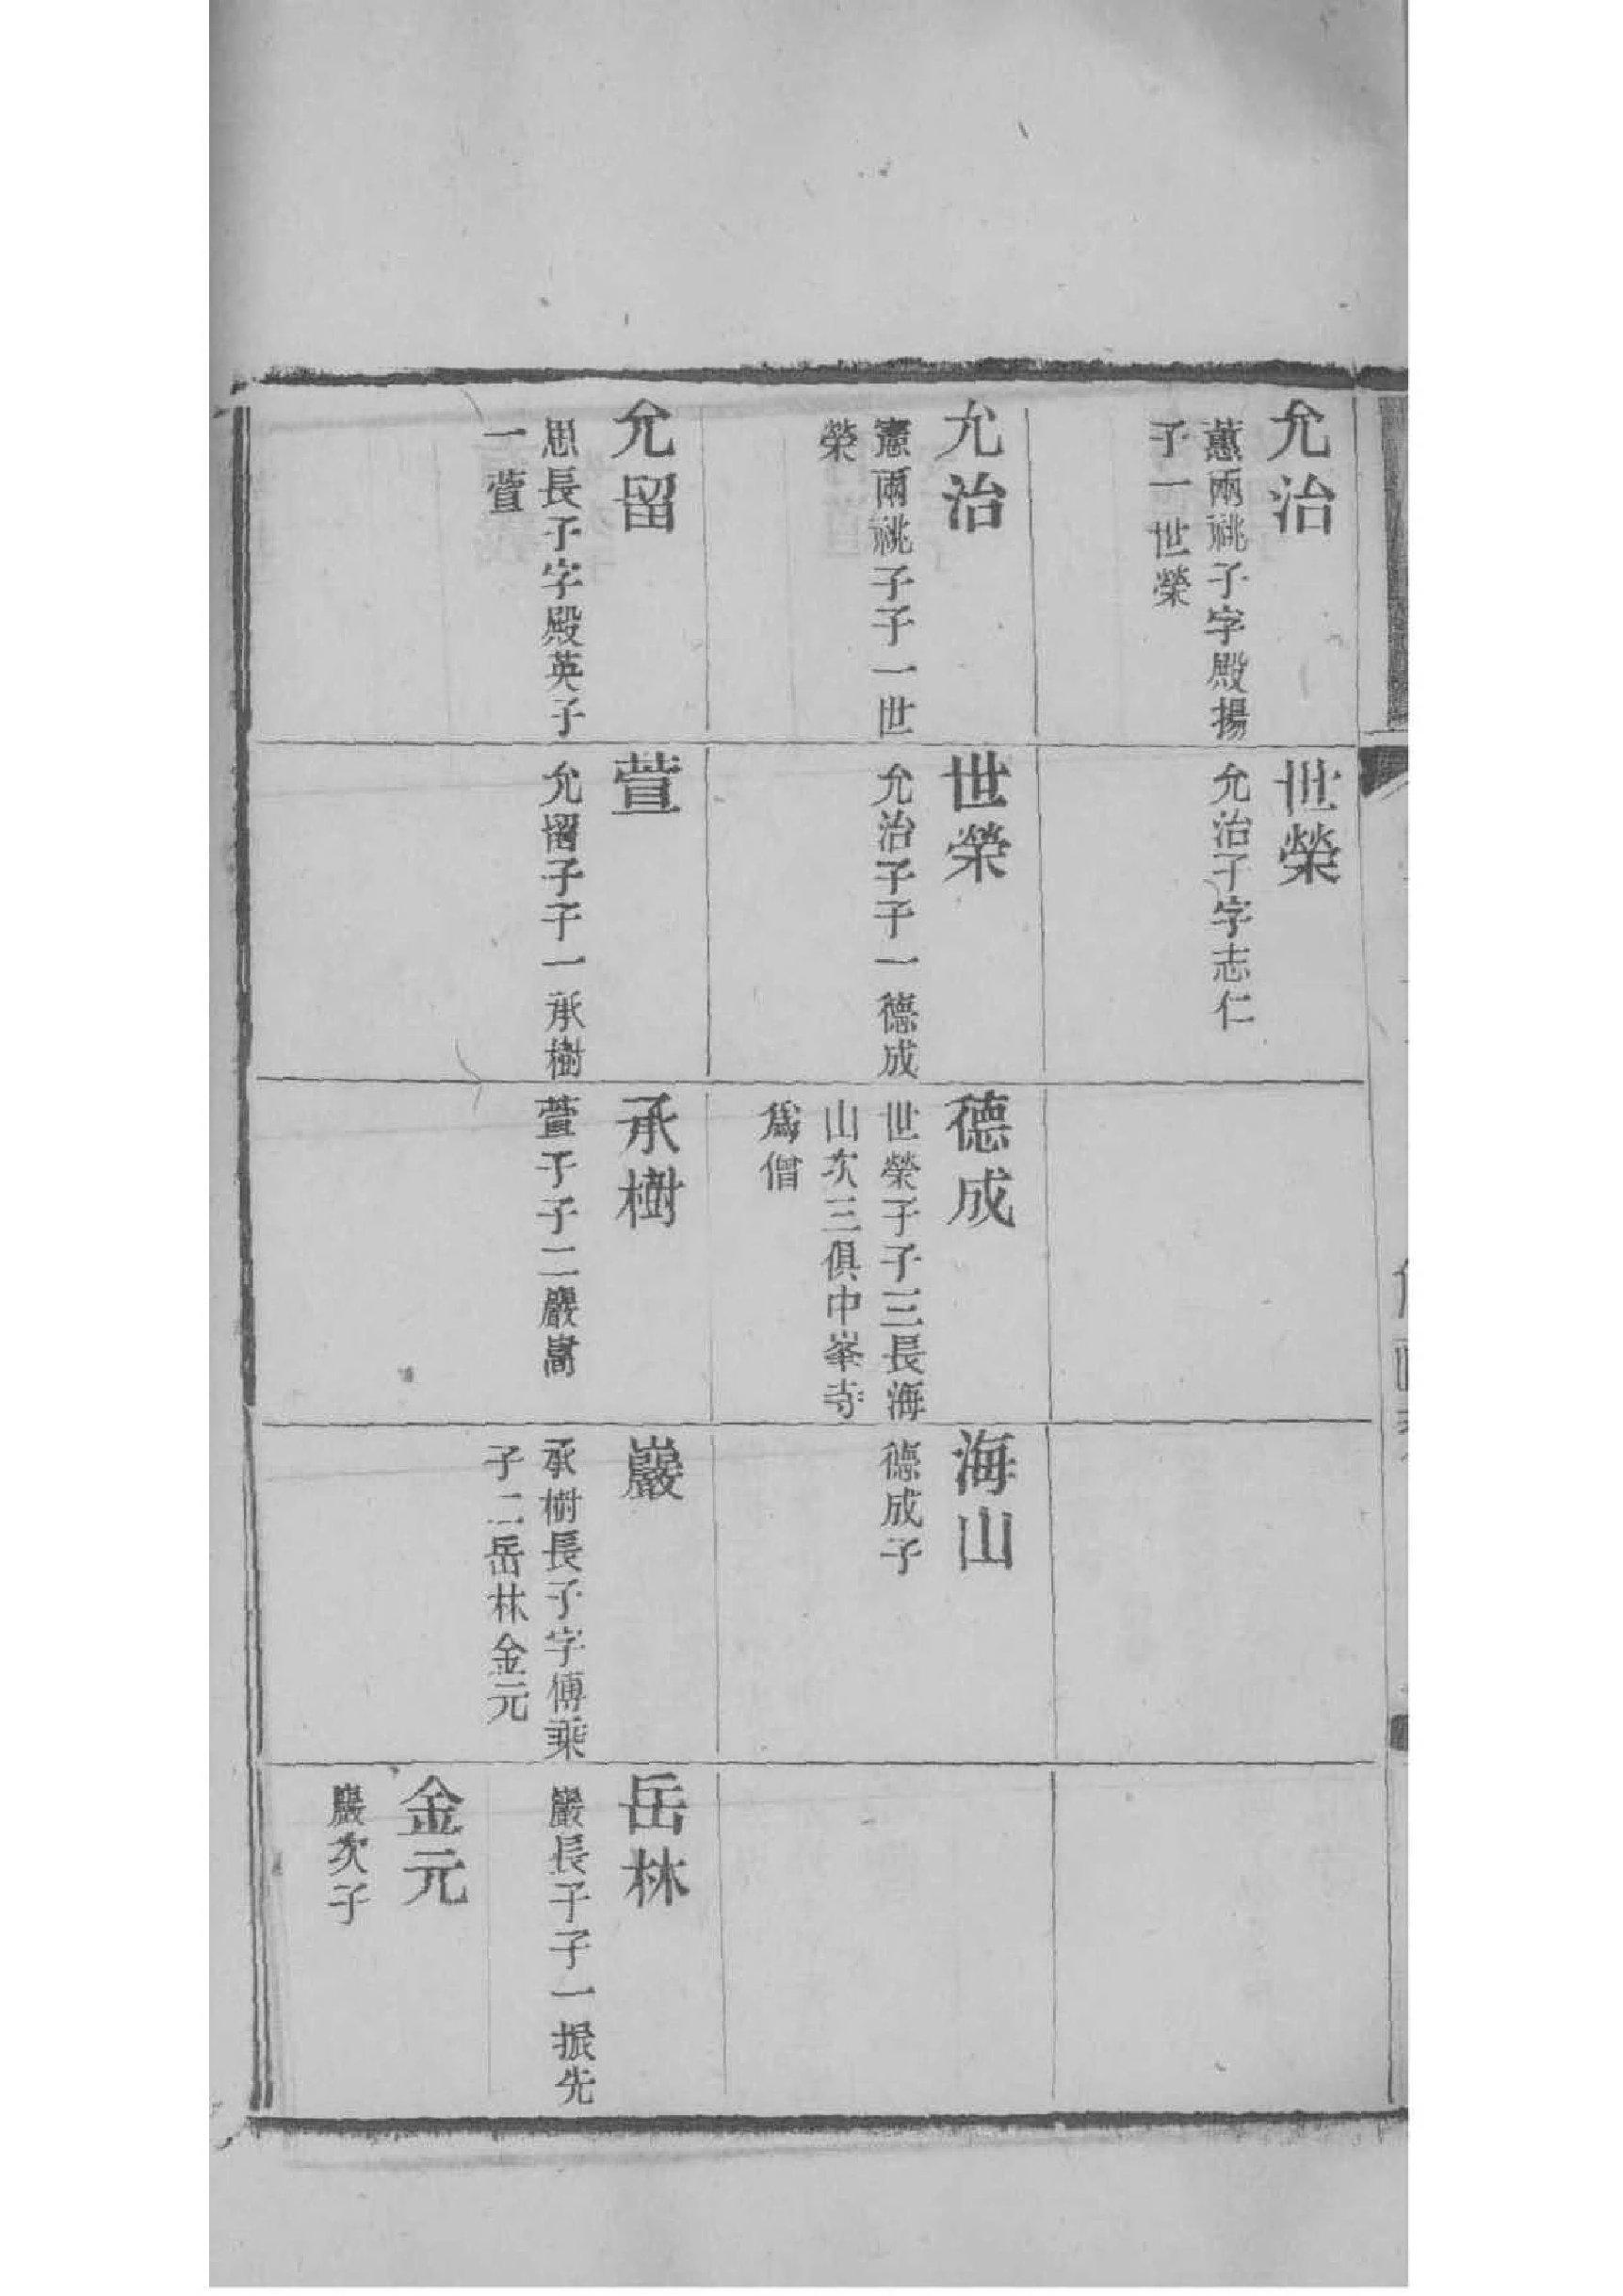 允治
蕙兩祧子字殿揚
子一世榮
世榮
允治子字志仁
允治
憲兩祧子子一世
榮
世榮
允治子子一德成
德成
世榮子子三長海
山次三俱中峯寺
爲僧
海山
德成子
允留
思長子字殿英子
一萱
萱
允留子子一承樹
承樹
萱子子二巖嵩
巖
承樹長子字傅乘
子二岳林金元
岳林
巖長子子一振先
金元
巖次子